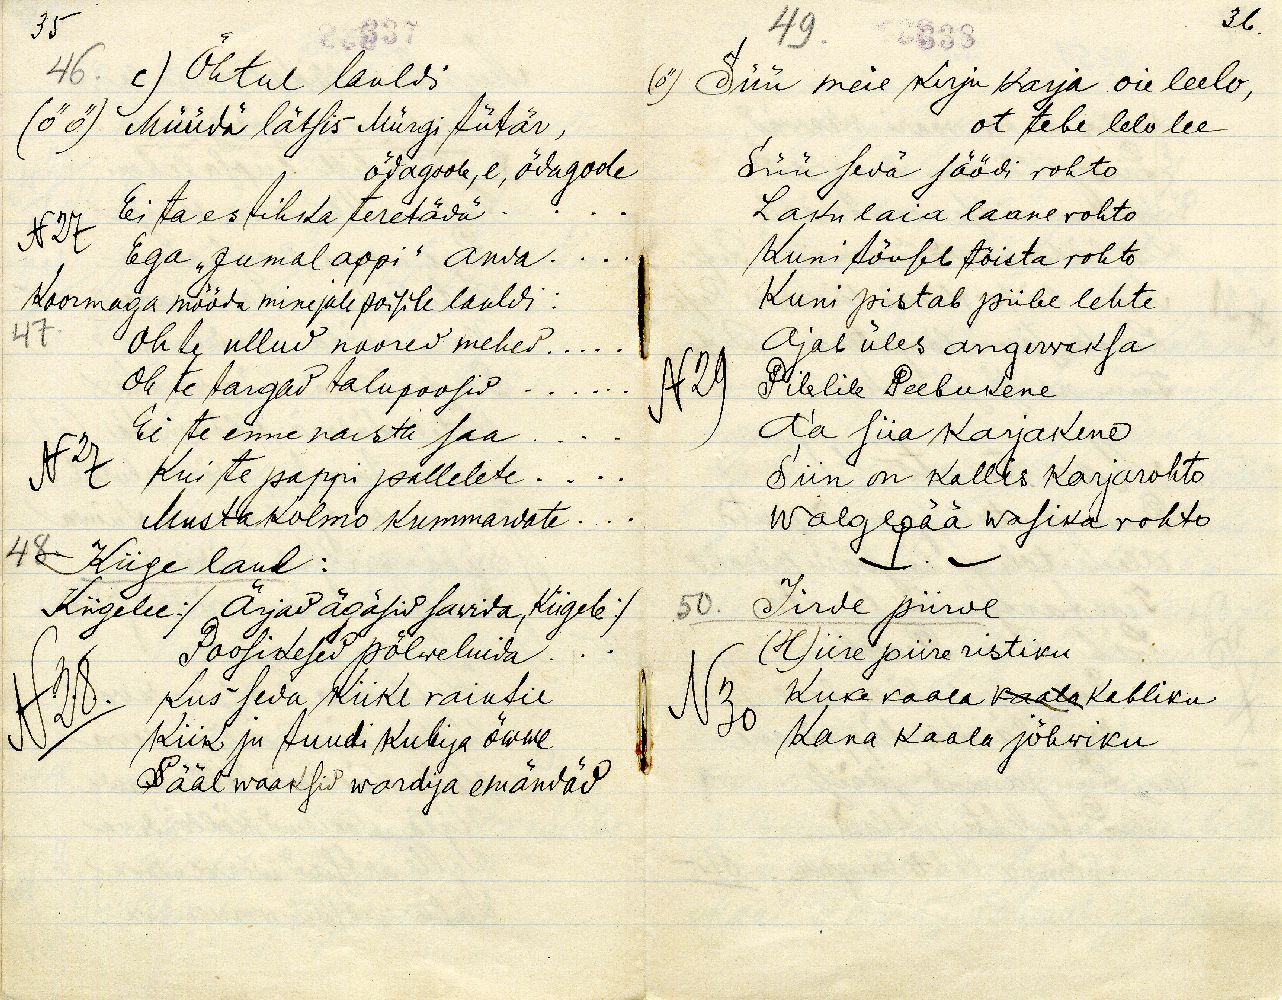 35
337
46. c) Õhtul lauldi
(öö) Müüdä lätsis Mürgi tütär,
ödagoole, e, ödagoole
Ei ta es tihka teretädä . . . .
N 27
Ega „Jumal appi" anda. . . .
Koormaga mööda minejale poisile lauldi:
47. Oh te ullud noored mehed.....
Oh te targad talupoosid ......
Ei te enne naista saa ....
N 27
Kui te pappi pallelete. . . .
Mustakolmo kummardate. . .
48 Kiige laul:
Kiigele:/ Ärjad ägäsid sawida, Kiigele:/
Poosikesed põlweluida . . .
N 28.
Kus seda kiike raiutie
Kiik ju tuudi Kubija õuwe
Sääl waaksid wardija emändäd
36.
338
49.
(ö) Süü meie kirju karja oie leelo,
ot tele lelo lee
Süü sedä söödi rohto
Laku laia laane rohto
Kuni tõuseb tõista rohto
Kuni pistab piibe lehte
Ajab üles angerwaksa
N 29
Pilelile Peebukene
A'a siia Karjakene
Siin on kallis Karjarohto
Walgepää wasika rohto
50. Iirde piirde
(H)iire piire ristiku
N 30
Kuke kaala kaala kabliku
Kana kaala jõhwiku